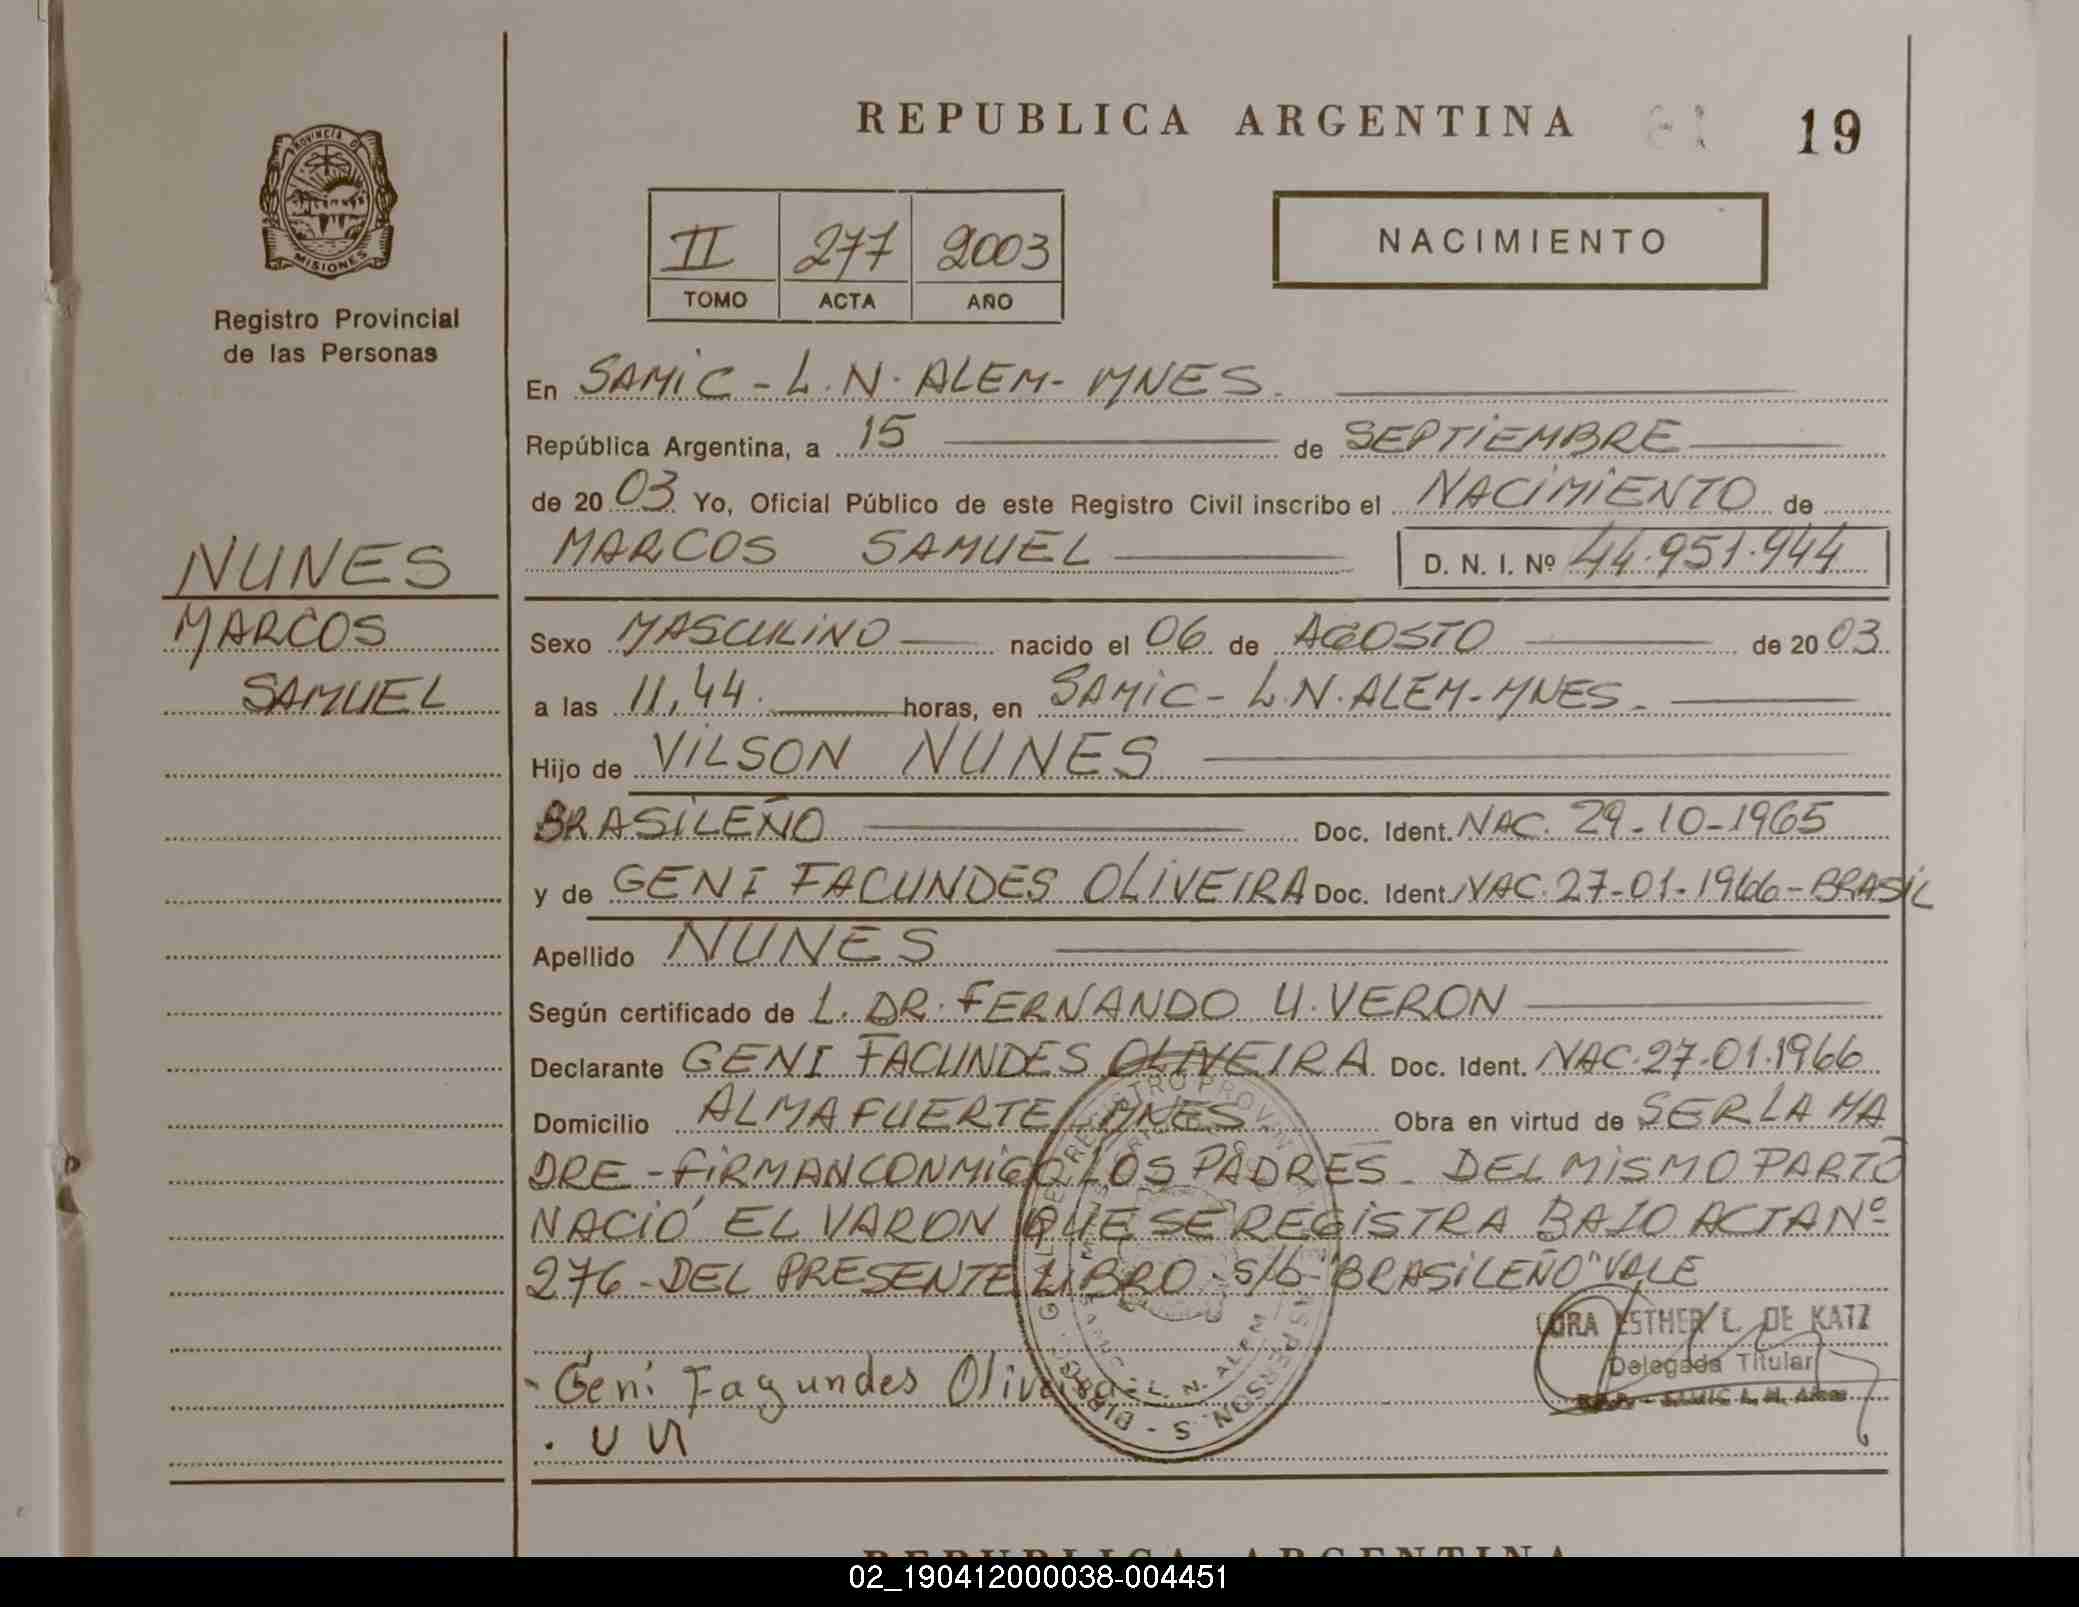 REPUBLICA ARGENTINA
19
PROVINCIA DE
MISIONES
Registro Provincial
de las Personas
II 277 2003
TOMO ACTA AÑO
NACIMIENTO
En SAMIC - L.N. ALEM - MNES.
República Argentina, a 15 de SEPTIEMBRE
de 2003 Yo, Oficial Público de este Registro Civil inscribo el NACIMIENTO de
MARCOS SAMUEL D. N. I. Nº 44.951.944
NUNES
MARCOS
SAMUEL
Sexo MASCULINO nacido el 06 de AGOSTO de 2003
a las 11,44. horas, en SAMIC - L.N. ALEM - MNES.
Hijo de VILSON NUNES
BRASILEÑO Doc. Ident. NAC. 29-10-1965
y de GENI FACUNDES OLIVEIRA Doc. Ident. NAC. 27-01-1966 - BRASIL
Apellido NUNES
Según certificado de L. DR. FERNANDO U. VERON
Declarante GENI FACUNDES OLIVEIRA Doc. Ident. NAC. 27.01.1966
Domicilio ALMAFUERTE MNES Obra en virtud de SER LA MA
DRE - FIRMAN CONMIGO LOS PADRES - DEL MISMO PARTO
NACIÓ EL VARON QUE SE REGISTRA BAJO ACTA Nº
276 - DEL PRESENTE LIBRO - s/b - "BRASILEÑO" VALE
CORA ESTHER L. DE KATZ
Delegada Titular
SAMIC L. N. Alem
- Geni Fagundes Oliveira
. V N
02_190412000038-004451